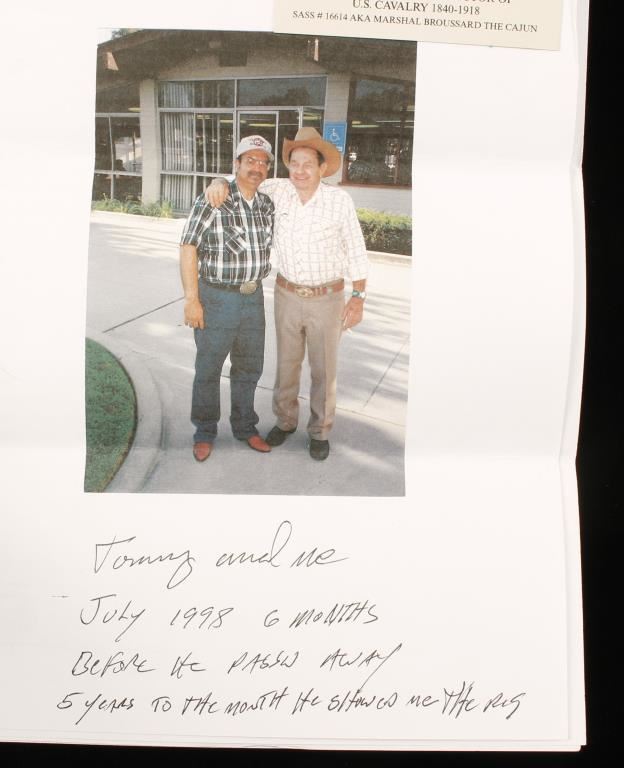 U.S. CAVALRY 1840-1918
SASS # 16614 AKA MARSHAL BROUSSARD THE CAJUN
Tommy and me
JULY 1998 6 MONTHS
BEFORE HE PASSED AWAY
5 YEARS TO THE MONTH HE SHOWED ME THE RIG